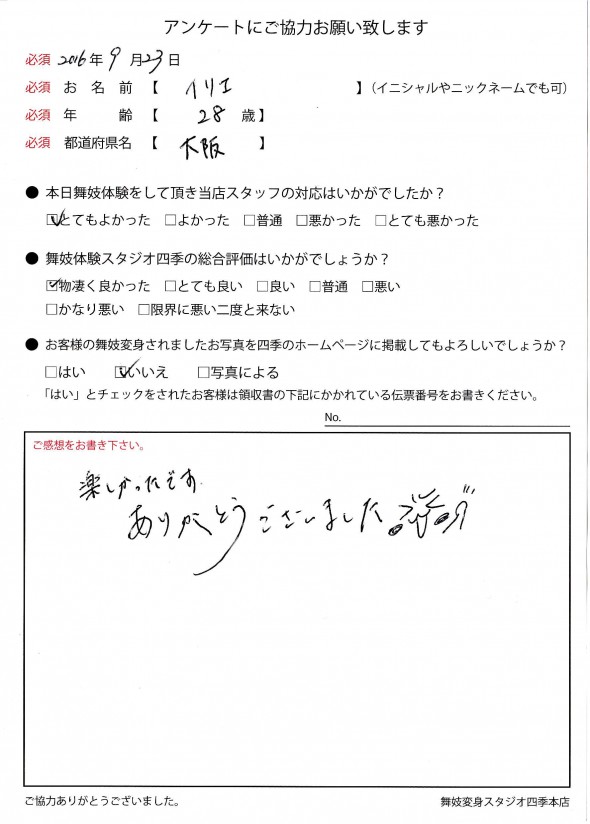 アンケートにご協力お願い致します
必須 2016年 9月23日
必須 お名前【 イリエ 】（イニシャルやニックネームでも可）
必須 年齢【 28 歳】
必須 都道府県名【 大阪 】
● 本日舞妓体験をして頂き当店スタッフの対応はいかがでしたか？
☑とてもよかった □よかった □普通 □悪かった □とても悪かった
● 舞妓体験スタジオ四季の総合評価はいかがでしょうか？
☑物凄く良かった □とても良い □良い □普通 □悪い
□かなり悪い □限界に悪い二度と来ない
● お客様の舞妓変身されましたお写真を四季のホームページに掲載してもよろしいでしょうか？
□はい ☑いいえ □写真による
「はい」とチェックをされたお客様は領収書の下記にかかれている伝票番号をお書きください。
No.
ご感想をお書き下さい。
楽しかったです.
ありがとうございました
ご協力ありがとうございました。
舞妓変身スタジオ四季本店